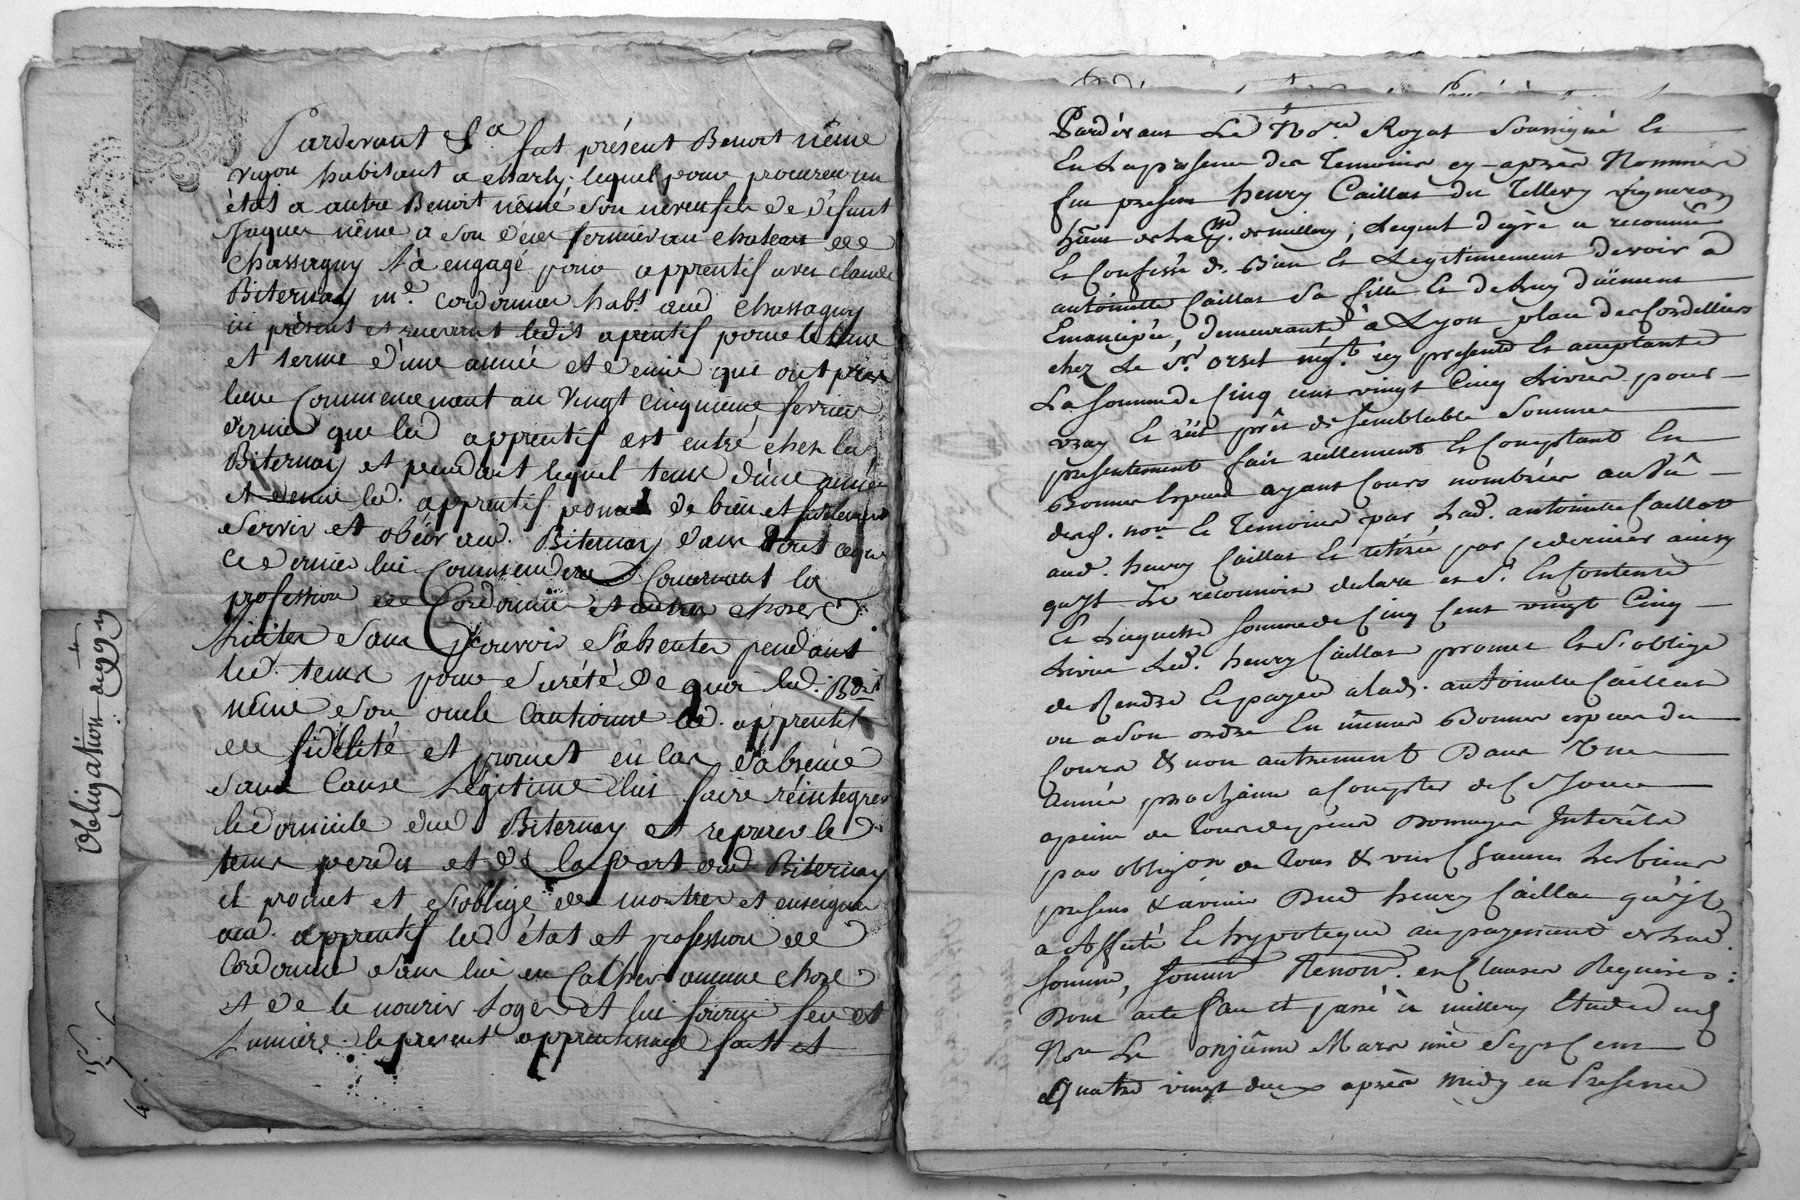 Pardevant &.a fut présent Benoit néme
vigon habitant a charly lequel pour procurer un
état a autre Benoit néme son neveu fils de défunt
Jaques néme a son deces fermier au chateau de
Chassagny l'a engagé pour apprentif avec claude
Biternay m.e cordonnier hab.t aud Chassagny
ici présent et recevant ledit aprentif pour le tems
et terme d'une année et demie qui ont pris
leur Commencement au Vingt cinquieme fevrier
dernier que led apprentif est entré chez led
Biternay et pendant lequel tems d'une année
et demie led. apprentif promet de bien et fidelement
servir et obéir aud. Biternay dans tout ce que
ce dernier lui Commendera Concernant la
profession de Cordonnier et autres choses
licites sans pouvoir s'absenter pendant
led. tems pour sureté de quoi led. Ben.t
néme son oncle Cautionne led. apprentif
de fidélité et promet en cas d'absence
sans Cause Légitime lui faire réintegrer
le domicile dud. Biternay et reparer le
tems perdu et de la part dud Biternay
il promet et s'oblige de montrer et enseigner
aud. apprentif led état et profession de
Cordonnier sans lui en Cacher aucune chose
et de le nourir loger et lui fournir feu et
Lumière. le present apprentissage fait et
Obligation
Pardevant Le No.re Royal Soussigné Et
En La presence des Temoins cy-après Nommés
fut present henry Caillat du Tellery vigneron
de millery ; Lequel degré a reconnu
Et Confessé de Bien Et Legitimement devoir a
antoinette Caillat Sa fille Et de Luy düement
Emancipée, demeurante à Lyon place des Cordelliers
chez Le S.r Orset nég.t icy presente Et acceptante
La Somme de Cinq cent vingt Cinq Livres pour
vray Et réel prêt de Semblable Somme
presentement fait réellement Et Comptant En
Bonnes Especes ayant Cours nombrées au Vû
desd. no.re Et Temoins par Lad. antoinette Caillat
aud. henry Caillat Et retirée par Ce dernier ainsy
qu'jl Le reconnoit declare et S'. En Contente
Et Laquelle Somme de Cinq Cent vingt Cinq
Livres Led. henry Caillat promet Et S'oblige
de Rendre Et payer a lad. antoinette Caillat
ou a Son ordre En mêmes Bonnes especes du
Cours & non autrement Dans Une
Année prochaine a Compter de Ce Jour
a peine de Tous depens Dommages Interêts
par oblig.on de Tous & uns Chacuns Ses biens
presens & avenir Dud henry Caillat qu'jl
a Affecté Et hypotequé au payement de Lad.
Somme, Renon. et Clauses Requises :
Dont acte fait et passé à millery Etude dud
No.re Le onzième Mars mil Sept Cent
Quatre vingt deux après midy en Presence